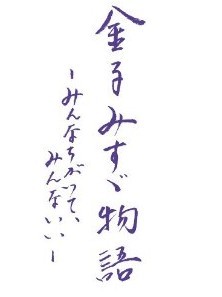 金子みすゞ物語
ーみんなちがって、
みんないいー